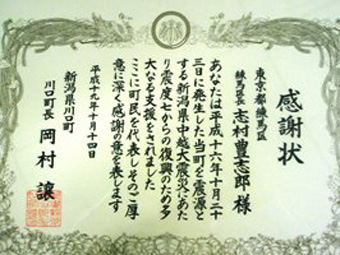 感謝状
東京都練馬区
練馬区長 志村豊志郎 様
あなたは平成十六年十月二十
三日に発生した当町を震源と
する新潟県中越大震災にあた
り震度七からの復興のため多
大なる支援をされました
ここに町民を代表しそのご厚
意に深く感謝の意を表します
平成十九年十月十四日
新潟県川口町
川口町長 岡村 譲